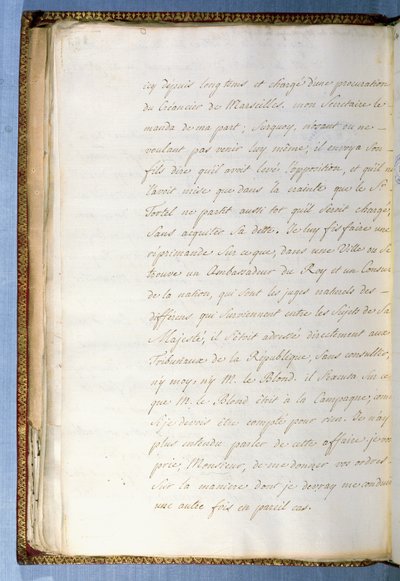 icy depuis longtems et chargé d'une procuration
du Créancier de Marseilles. mon Secretaire le
manda de ma part; Surquoy, n'osant ou ne
voulant pas venir luy même, il envoya Son
fils dire qu'il avoit levé l'opposition, et qu'il ne
l'avoit mise que dans la crainte que le Sr.
Tortel ne partit aussi tot qu'il Seroit chargé,
Sans aquiter Sa dette. Je luy fis faire une
réprimande Sur ceque, dans une Ville ou Se
trouve un Ambassadeur du Roy et un Consul
de la nation, qui Sont les juges naturels des
différens qui Surviennent entre les Sujets de Sa
Majesté, il S'étoit adressé directement aux
Tribunaux de la République, Sans consulter,
n'y moy, n'y M. le Blond. il S'excusa Sur ce
que M. le Blond étoit à la Campagne, comme
Si je devois être compté pour rien. Je n'ay
plus entendu parler de cette affaire. je vous
prie, Monsieur, de me donner vos ordres
Sur la maniere dont je devray me conduire
une autre fois en pareil cas.